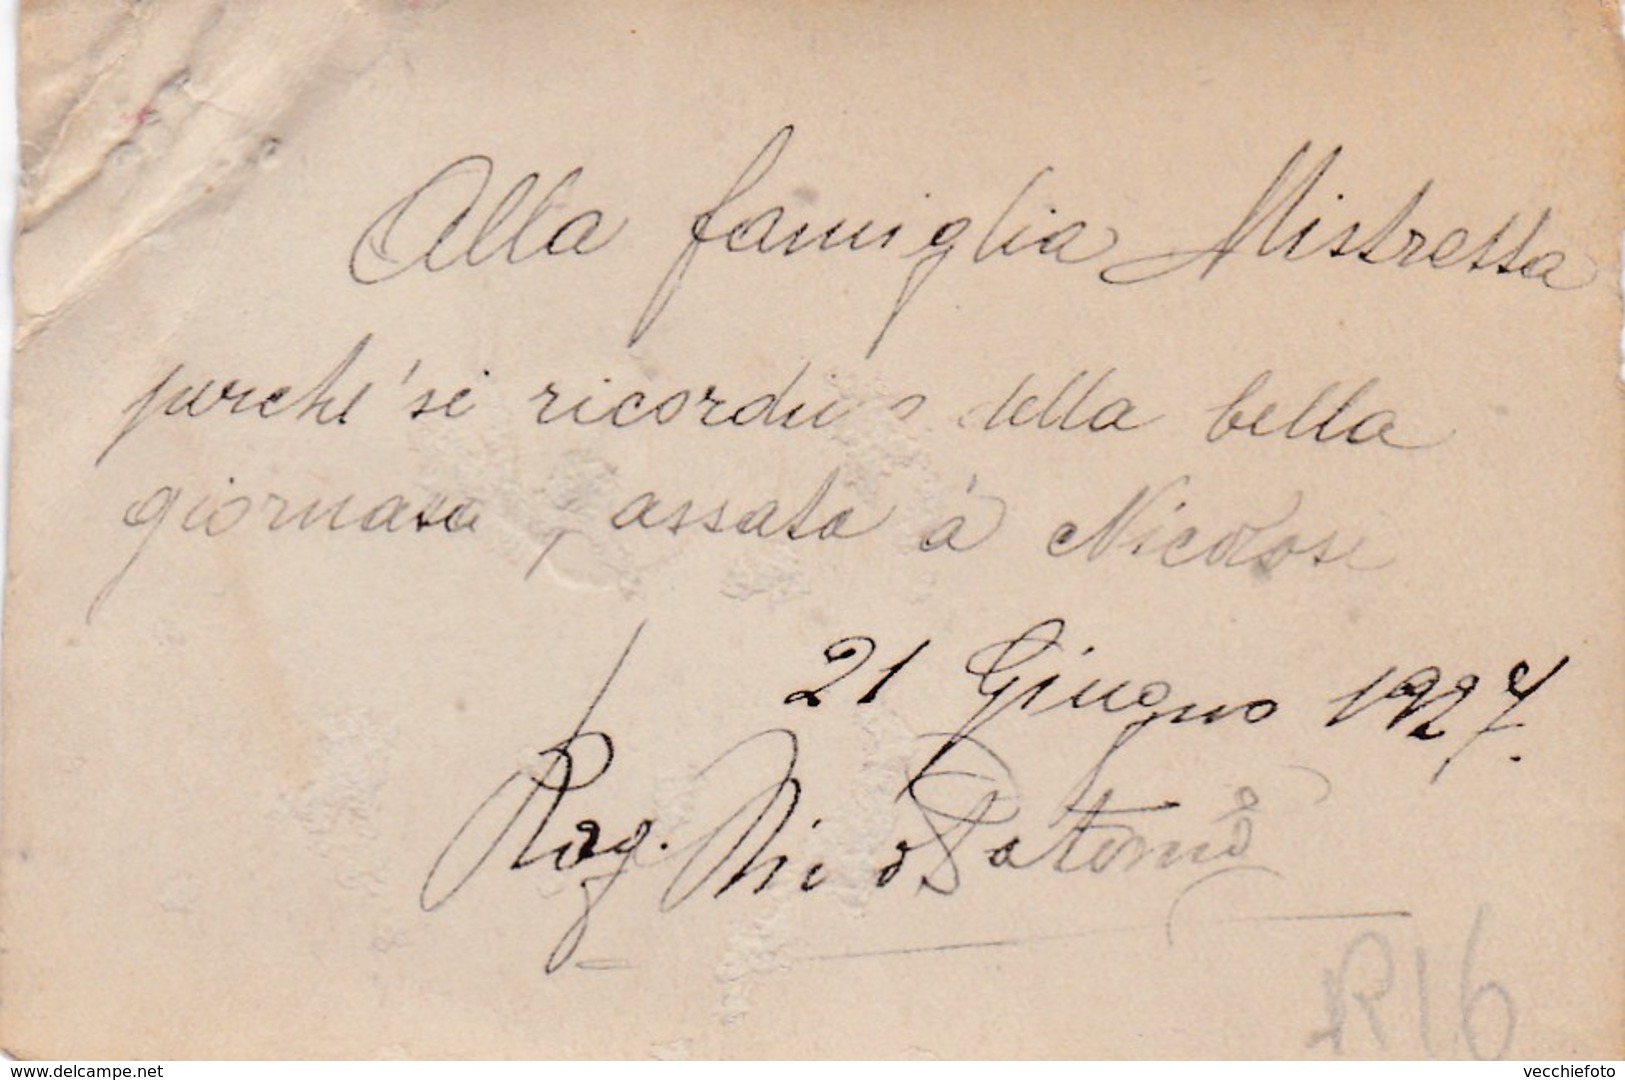 Alla famiglia Mistretta
perche' si ricordi della bella
giornata passata à Nicolosi
21 Giugno 1927.
Rag.
R16
www.delcampe.net
vecchiefoto